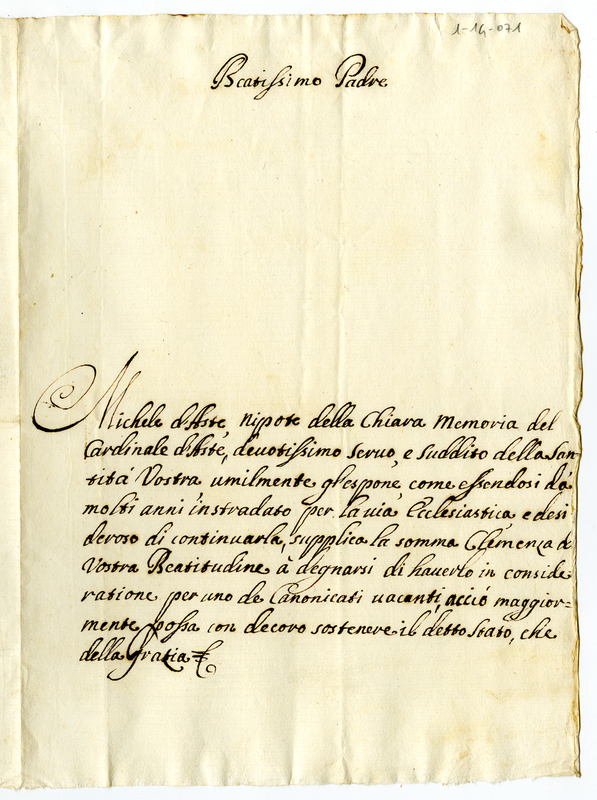 1-14-071
Beatissimo Padre
Michele d'Aste, Nipote della Chiara Memoria del
Cardinale d'Aste, devotissimo servo, e suddito della San
tità Vostra umilmente gl'espone come essendosi dà
molti anni instradato per la via Ecclesiastica e desi
deroso di continuarla, supplica la somma Clemenza di
Vostra Beatitudine à degnarsi di haverlo in conside
ratione per uno de Canonicati vacanti, acciò maggior=
mente possa con decoro sostenere il detto Stato, che
della Gratia